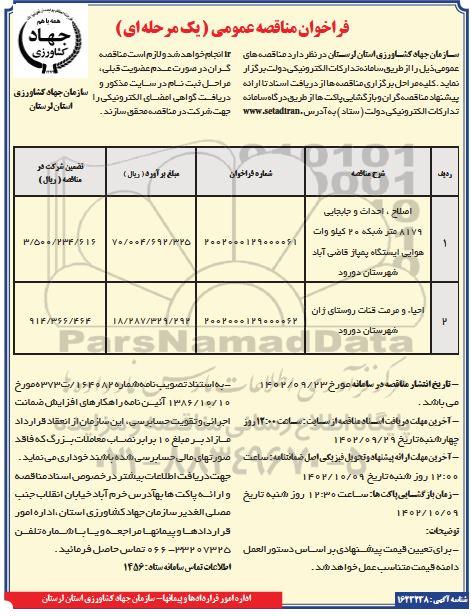 فراخوان مناقصه عمومی (یک مرحله ای)
همه با هم
جهاد
کشاورزی
سازمان جهاد کشاورزی
استان لرستان
سازمان جهاد کشاورزی استان لرستان در نظر دارد مناقصه های
عمومی ذیل را از طریق سامانه تدارکات الکترونیکی دولت برگزار
نماید. کلیه مراحل برگزاری مناقصه ها از دریافت اسناد تا ارائه
پیشنهاد مناقصه گران و بازگشایی پاکت ها از طریق درگاه سامانه
تدارکات الکترونیکی دولت (ستاد) به آدرس www.setadiran.
ir انجام خواهد شد و لازم است مناقصه
گران در صورت عدم عضویت قبلی،
مراحل ثبت نام در سایت مذکور و
دریافت گواهی امضای الکترونیکی را
جهت شرکت در مناقصه محقق سازند.
ردیف
شرح مناقصه
شماره فراخوان
مبلغ برآورد (ریال)
تضمین شرکت در
مناقصه (ریال)
۱
اصلاح، احداث و جابجایی
۸۱۷۹ متر شبکه ۲۰ کیلو وات
هوایی ایستگاه پمپاژ قاضی آباد
شهرستان دورود
۲۰۰۲۰۰۰۱۲۹۰۰۰۰۶۱
۷۰/۰۰۴/۶۹۲/۳۲۵
۳/۵۰۰/۲۳۴/۶۱۶
۲
احیاء و مرمت قنات روستای ژان
شهرستان دورود
۲۰۰۲۰۰۰۱۲۹۰۰۰۰۶۲
۱۸/۲۸۷/۳۲۹/۲۹۲
۹۱۴/۳۶۶/۴۶۴
ParsNamadData
- تاریخ انتشار مناقصه در سامانه مورخ ۱۴۰۲/۰۹/۲۳
می باشد.
- آخرین مهلت دریافت اسناد مناقصه از سایت: ساعت ۱۲:۰۰ روز
چهارشنبه تاریخ ۱۴۰۲/۰۹/۲۹
- آخرین مهلت ارائه پیشنهاد و تحویل فیزیکی اصل ضمانتنامه: ساعت
۱۲:۰۰ روز شنبه تاریخ ۱۴۰۲/۱۰/۰۹
- زمان بازگشایی پاکت ها: ساعت ۱۲:۳۰ روز شنبه تاریخ
۱۴۰۲/۱۰/۰۹
توضیحات:
- برای تعیین قیمت پیشنهادی بر اساس دستورالعمل
دامنه قیمت متناسب عمل خواهد شد.
- به استناد تصویب نامه شماره ۱۶۴۰۸۲/ت۳۷۳ه مورخ
۱۳۸۶/۱۰/۱۰ آئین نامه راهکارهای افزایش ضمانت
اجرائی و تقویت حسابرسی، این سازمان از انعقاد قرارداد
مازاد بر مبلغ ۱۰ برابر نصاب معاملات بزرگ که فاقد
صورتهای مالی حسابرسی شده باشند خودداری می نماید.
جهت دریافت اطلاعات بیشتر در خصوص اسناد مناقصه
و ارائه پاکت ها به آدرس خرم آباد خیابان انقلاب جنب
مصلی الغدیر سازمان جهاد کشاورزی استان، اداره امور
قراردادها و پیمانها مراجعه و یا با شماره تلفن
۳۳۲۰۷۳۲۵-۰۶۶ تماس حاصل فرمائید.
اطلاعات تماس سامانه ستاد: ۱۴۵۶
شناسه آگهی: ۱۶۳۳۴۳۸
اداره امور قراردادها و پیمانها - سازمان جهاد کشاورزی استان لرستان